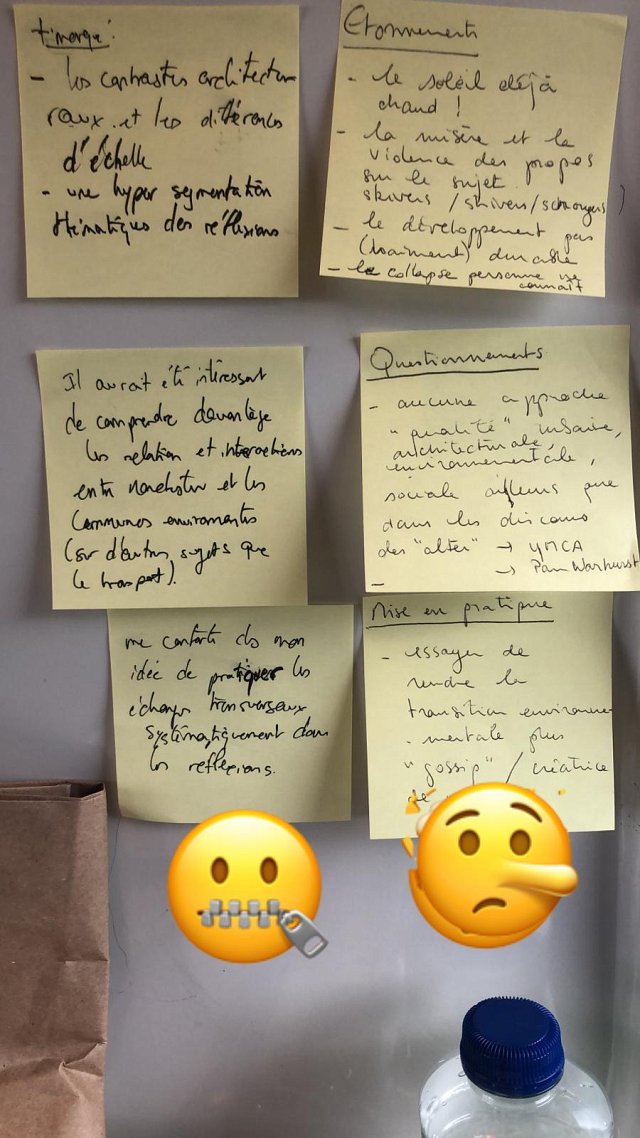 t'marqué:
- les contrastes architectu-
raux et les différences
d'échelle
- une hyper segmentation
thématiques des réflexions
Etonnements
- le soleil déjà
chaud !
- la misère et la
violence des propos
sur le sujet.
skivers / shivers /
- le développement pas
(vraiment) durable
- le collapse personne ne
connaît
Il aurait été intéressant
de comprendre davantage
les relation et interactions
entre Manchester et les
communes environnantes
(sur d'autres sujets que
le transport).
Questionnements
- aucune approche
"qualité" urbaine,
architecturale,
environnementale,
sociale ailleurs que
dans les discours
des "alter" → YMCA
→ Pam Warhurst
-
me conforte ds mon
idée de pratiquer les
échanges transversaux
systématiquement dans
les reflexions.
Mise en pratique
- essayer de
rendre la
transition environne-
-mentale plus
"gossip" / créatrice
de